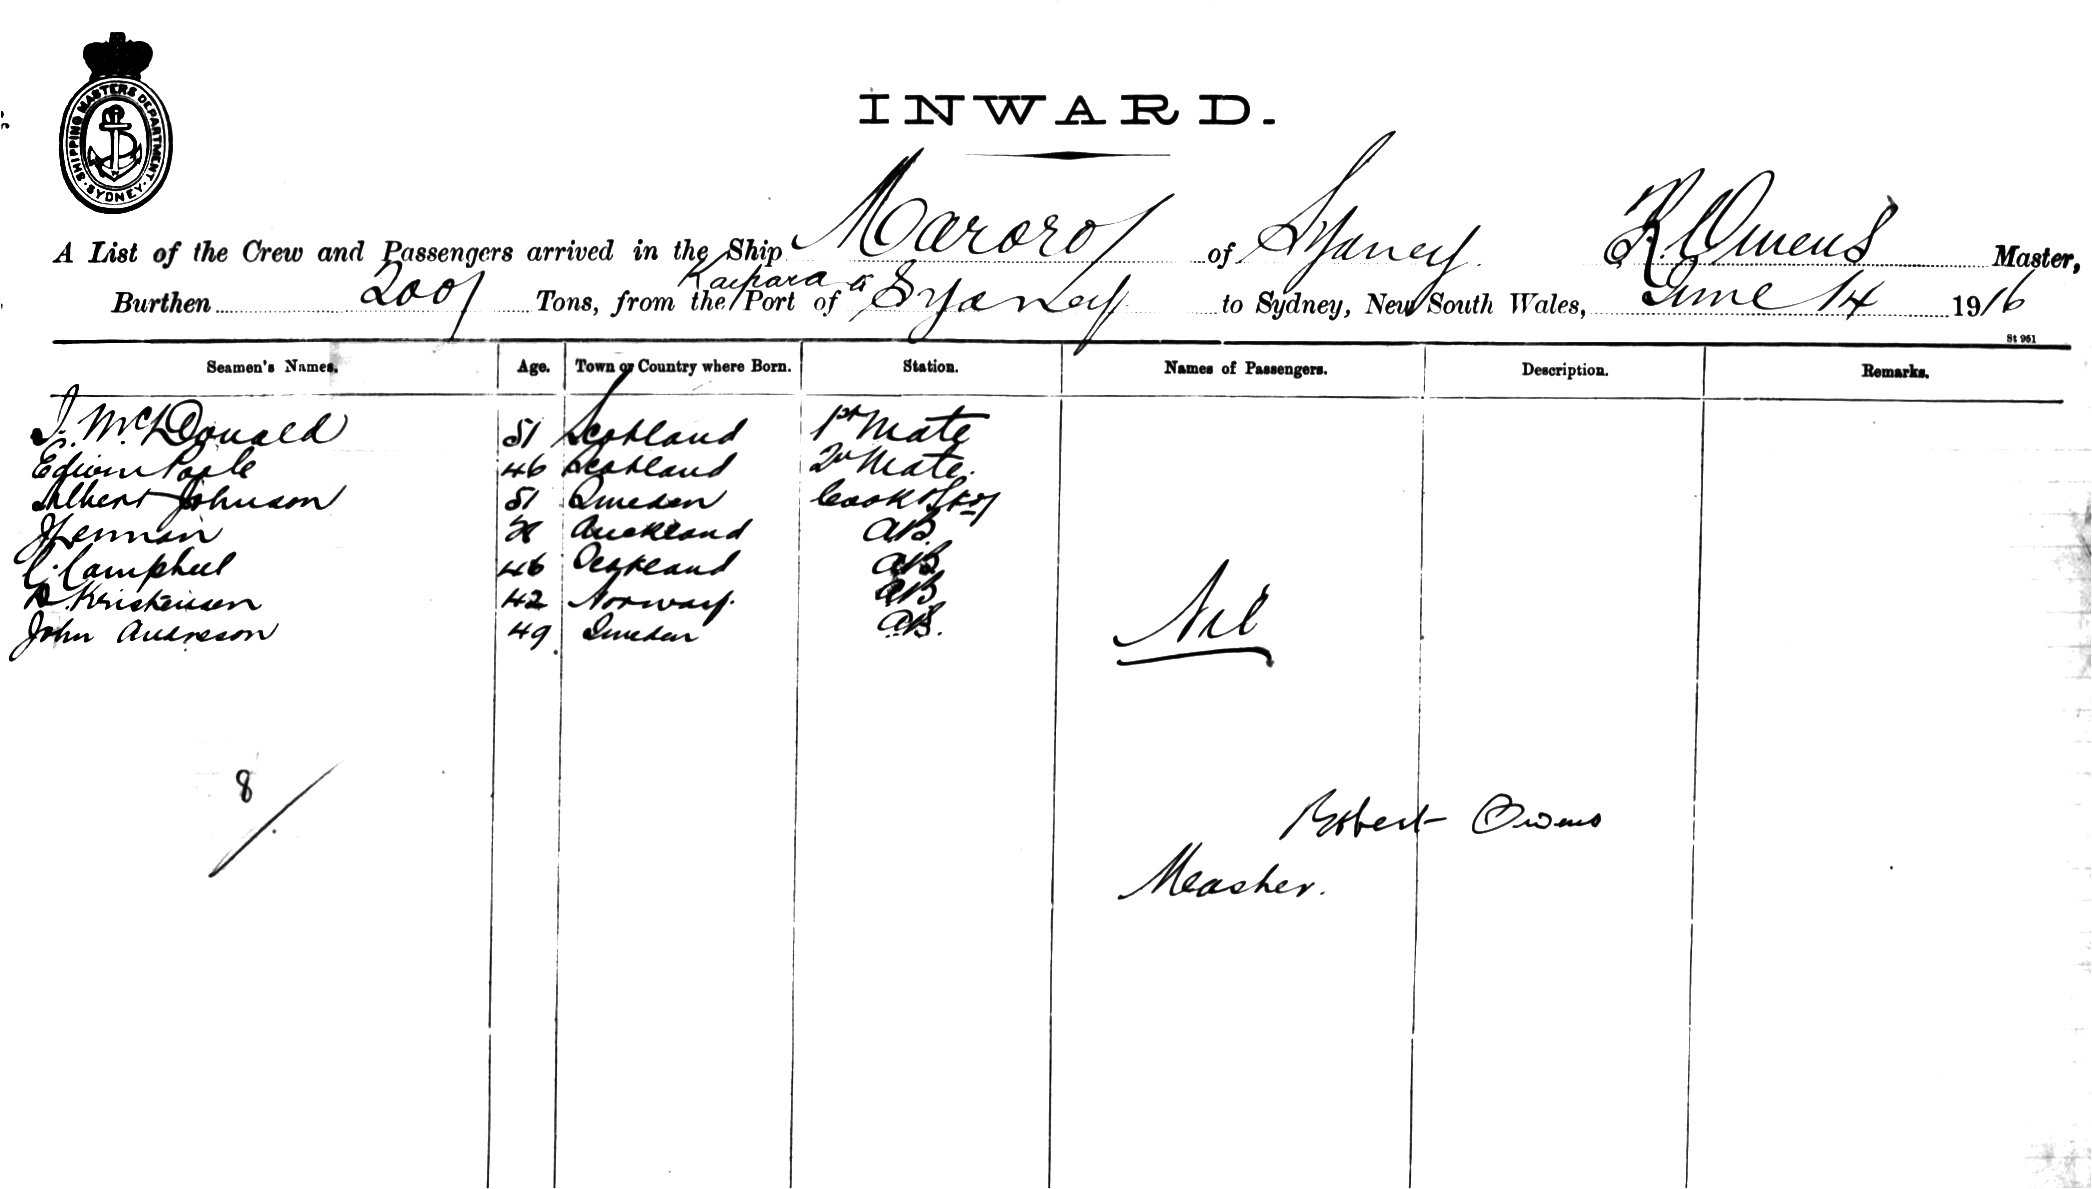 SHIPPING MASTERS DEPARTMENT
SYDNEY
INWARD.
A List of the Crew and Passengers arrived in the Ship Mororo of Sydney R. Owens Master,
Burthen 200 Tons, from the Port of Kaipara to Sydney to Sydney, New South Wales, June 14 1916
St 961
Seamen's Names. Age. Town or Country where Born. Station. Names of Passengers. Description. Remarks.
J. McDonald 51 Scotland 1st Mate
Edwin Poole 46 Scotland 2nd Mate.
Albert Johnson 51 Sweden Cook &
Auckland AB.
C. Campbell 46 AB
Kristensen 42 Norway. AB
John Andreson 49 Sweden AB.
Nil
8
Robert Owens
Master.